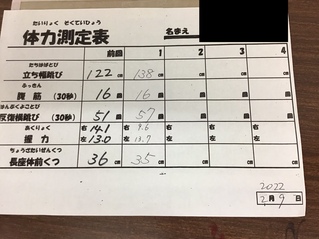 たいりょく そくていひょう
体力測定表 名まえ
前回 1 2 3 4
たちはばとび
立ち幅跳び 122 cm 138 cm cm cm cm
ふっきん
腹筋 (30秒) 16 回 16 回 回 回 回
はんぷくよことび
反復横跳び (30秒) 51 回 57 回 回 回 回
あくりょく 右 14.1 右 9.6 右 右 右
握力 左 13.0 左 13.7 左 左 左
ちょうざたいぜんくつ
長座体前くつ 36 cm 35 cm cm cm cm
2022
2月9日